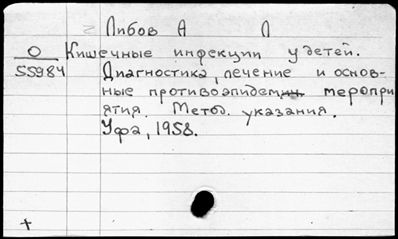 Либов А Л
О Кишечные инфекции у детей.
55984 Диагностика, лечение и основ-
ные противоэпидем. меропри
ятия. Метод. указания.
Уфа, 1958.
+